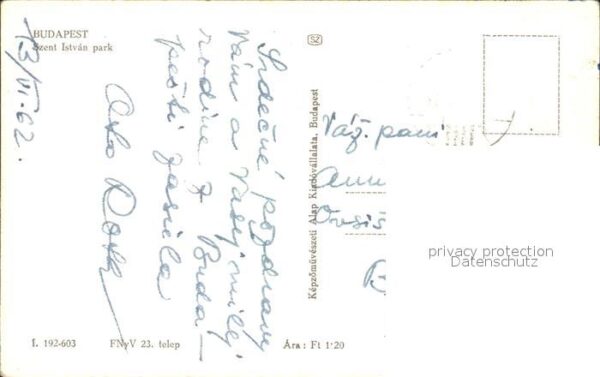 BUDAPEST
Szent István park
13/VI-62.
Srdečné pozdravy
Vám a Vašej milej
rodine z Buda-
pešti zasiela
Oto Roth
Képzőművészeti Alap Kiadóvállalata, Budapest
Váž. pani
privacy protection
Datenschutz
I. 192-603
FNyV 23. telep
Ára: Ft 1·20